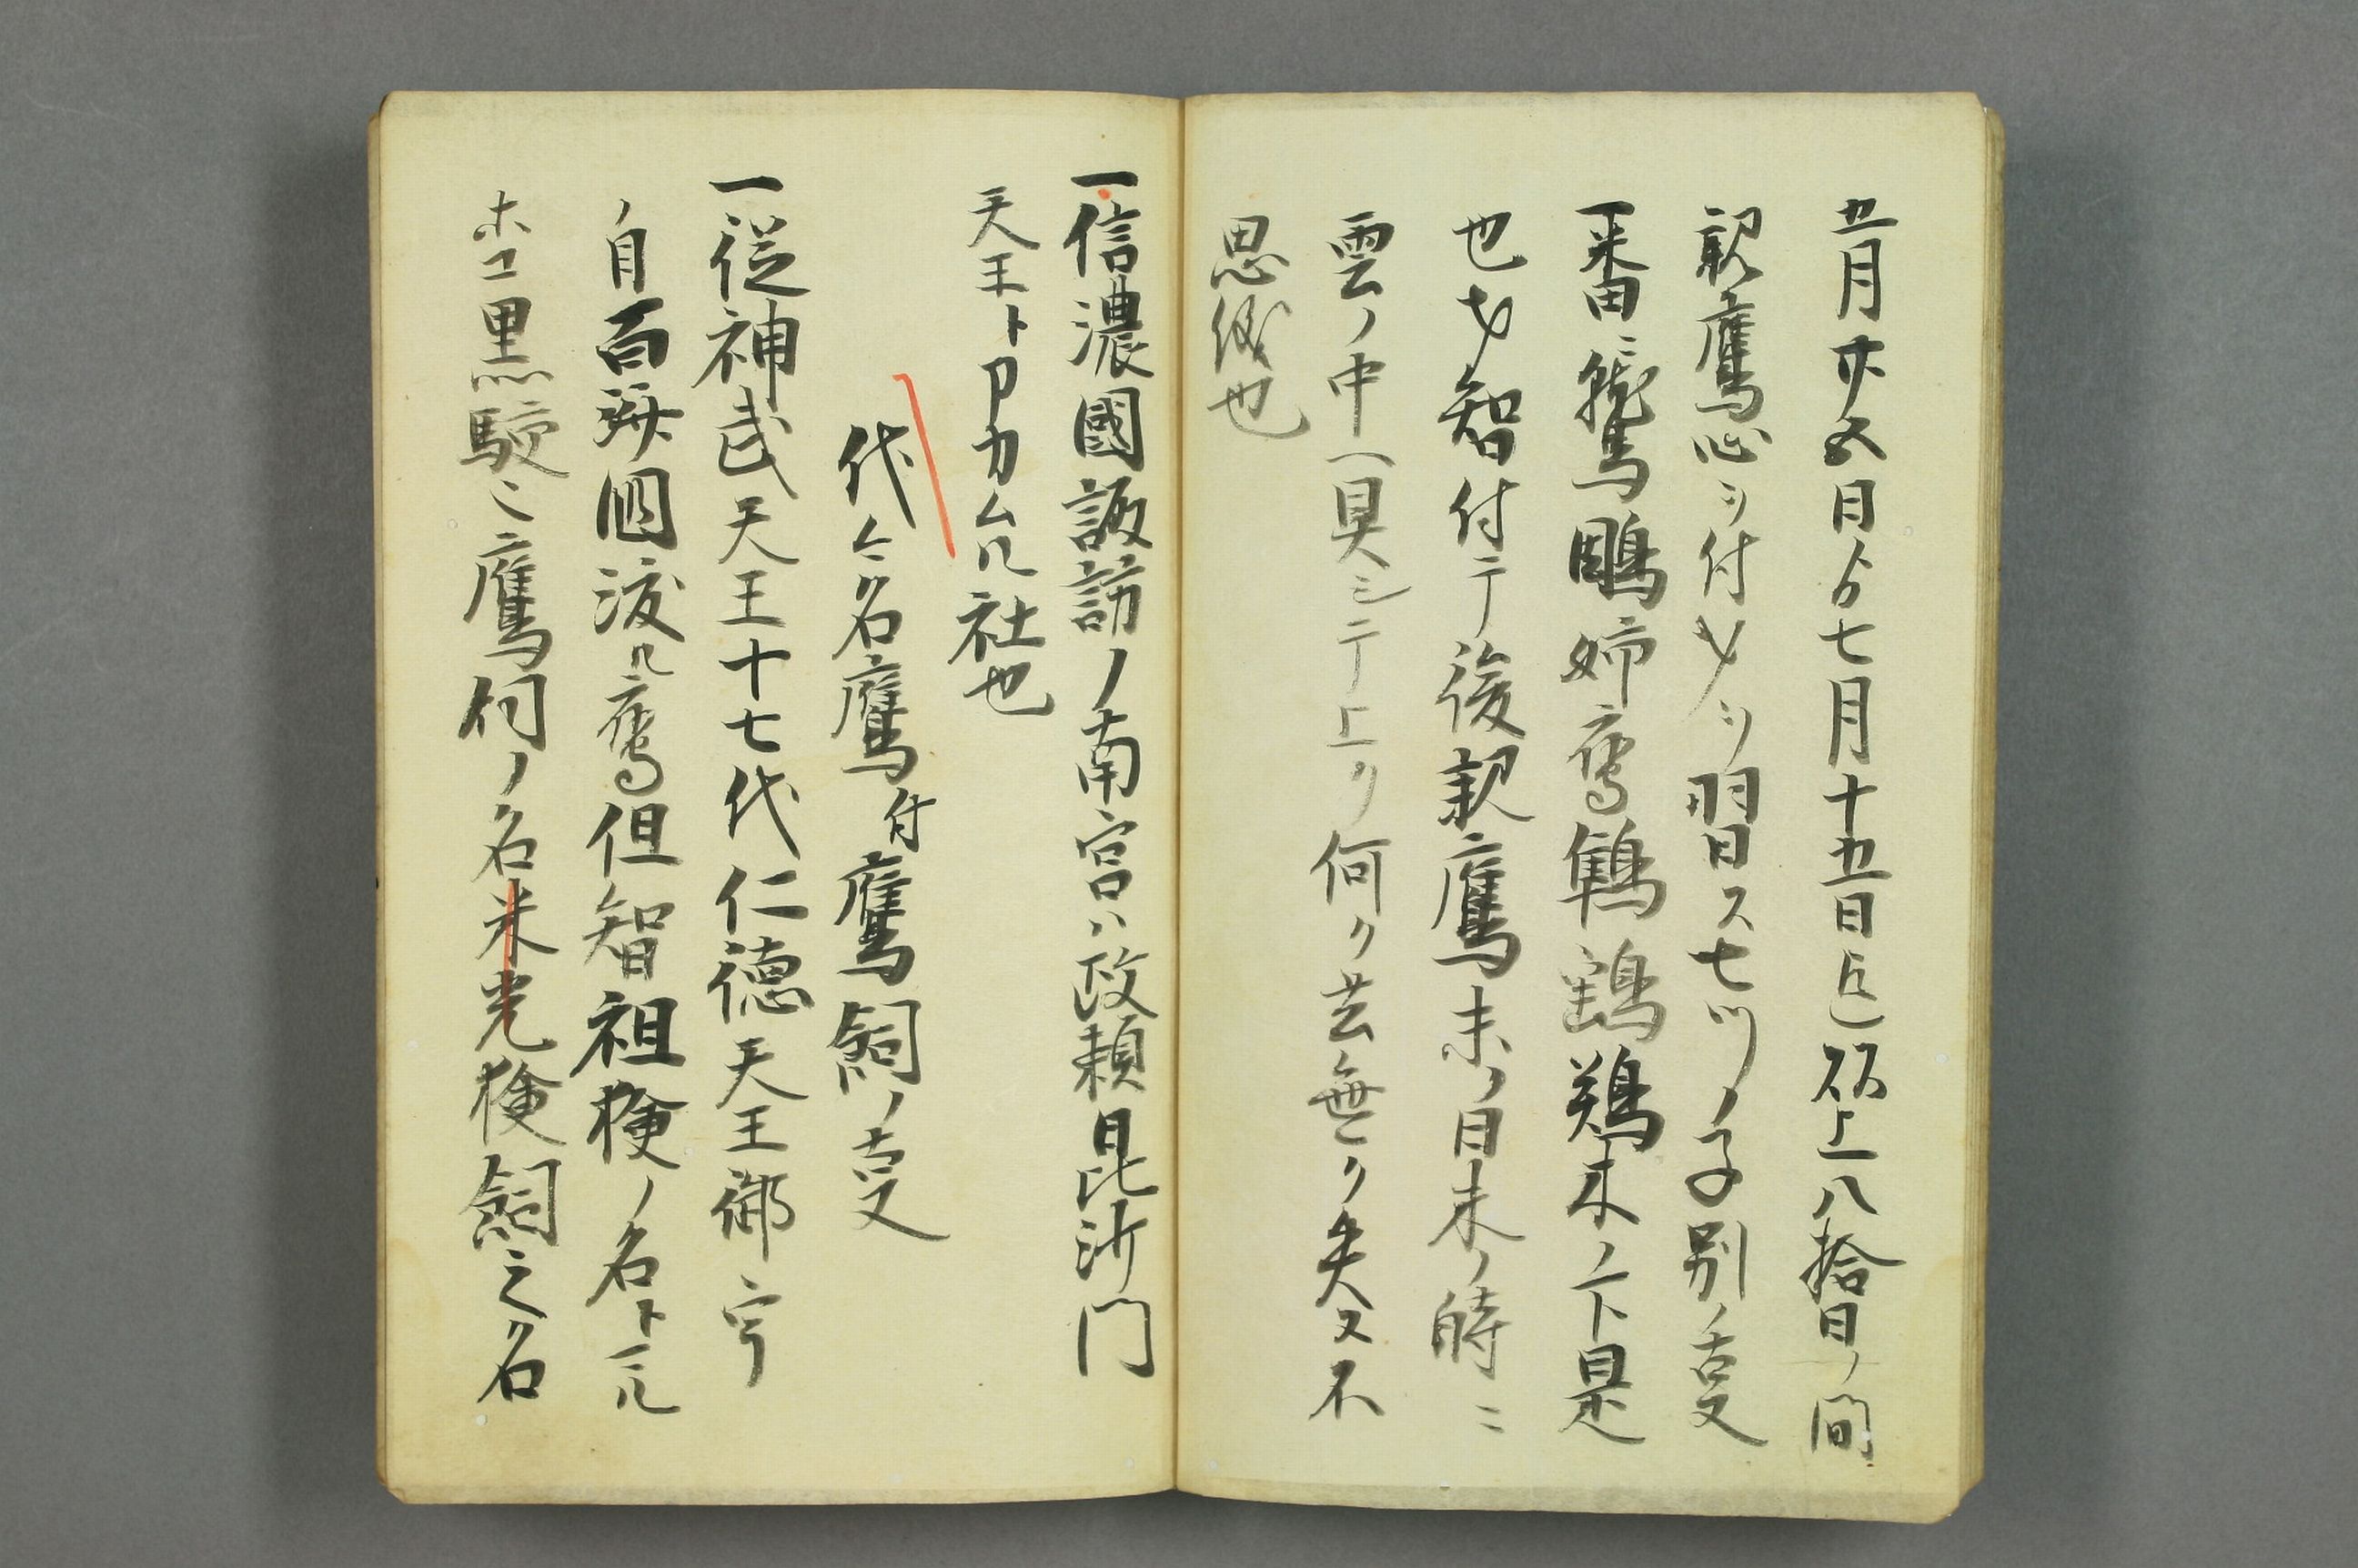 五月廿五日ゟ七月十五日迄以上八拾日ノ間
親鷹心ヲ付ケヅ習ス七ツノ子別ノ事
一番ニ鷲鵰姉鷹鶴鶏鶏末ノ下是
也才智付テ後親鷹未ノ日未ノ時ニ
雲ノ中ヘ具シテ上リ何ク共無ク失又不
思儀也
一信濃國諏訪ノ南宮ハ政頼毘沙門
天王トアカムル社也
代々名鷹付鷹飼ノ事
一従神武天王十七代仁徳天王御宇
ノ自百済国渡ル鷹但智祖㹨ノ名ト云ル
ホコ黒駮ニ鷹飼ノ名米光㹨飼之名